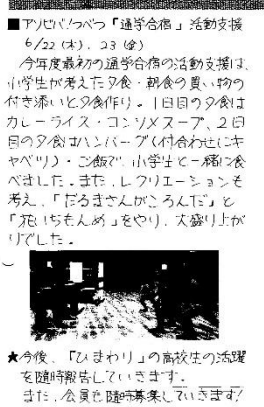 ■アソビバ!つべつ「通学合宿」活動支援
6/22(木)、23(金)
今年度最初の通学合宿の活動支援は、
小学生が考えた夕食・朝食の買い物の
付き添いと夕食作り。1日目の夕食は
カレーライス・コンソメスープ、2日
目の夕食はハンバーグ(付合わせにキ
ャベツ)・ご飯で、小学生と一緒に食
べました。また、レクリエーションも
考え、「だるまさんがころんだ」と
「花いちもんめ」をやり、大盛り上が
りでした。
★今後、「ひまわり」の高校生の活躍
を随時報告していきます。
また、会員も随時募集していきます!